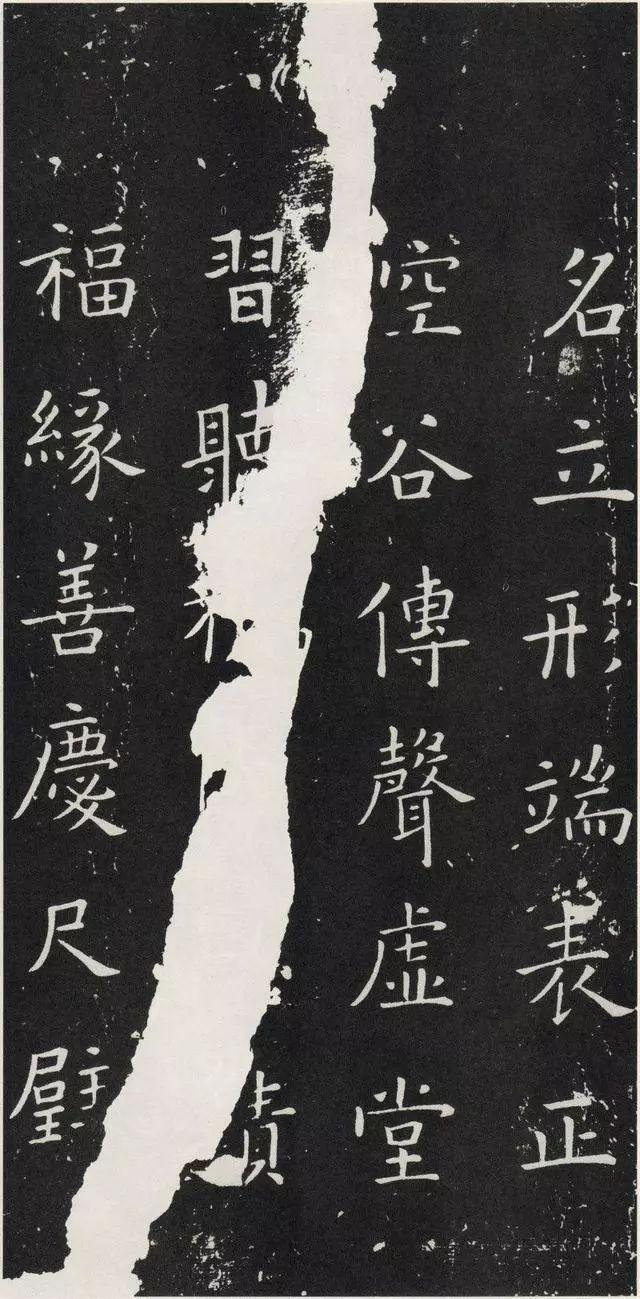 名立形端表正
空谷傳聲虚堂
習聽
福緣善慶尺璧